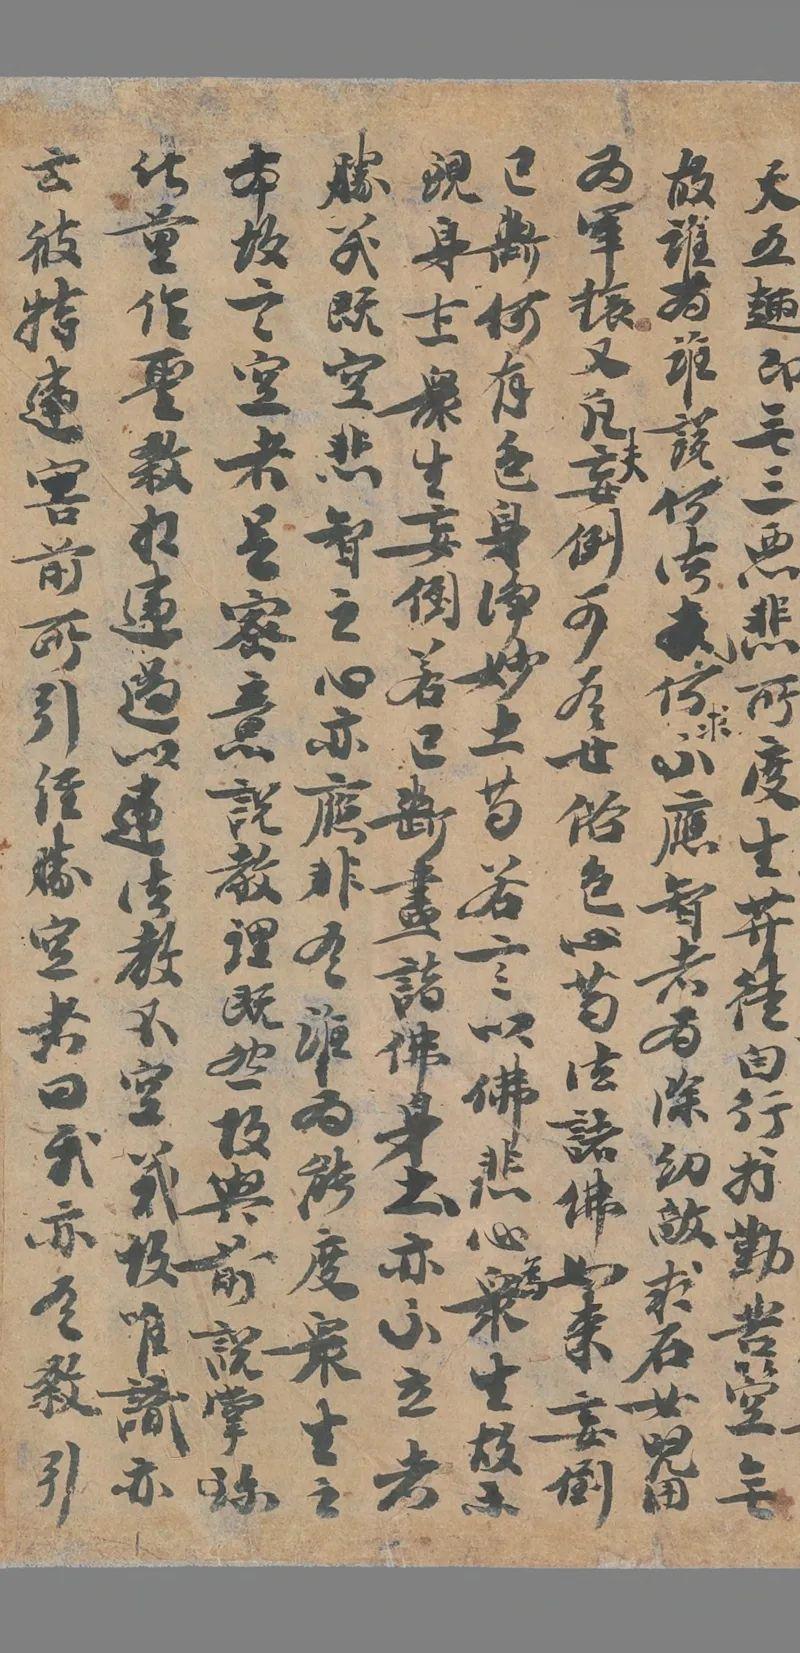 天五趣即无三惡悲所度生并徒自行於勤苦空无
故誰為誰說何法執何求不應智者為除幻敵求石女兒用
為軍旅又凡夫妄倒可有世俗色心等法諸佛如來妄倒
已斷何有色身淨妙土等若言以佛悲心為衆生故示
現身土衆生妄倒若已斷盡諸佛身土亦不立者
勝義既空悲智之心亦應非有誰為能度衆生之
本故言空者是密意說教理既然故與前說掌珍
比量作聖教相違過以違法教不空義故唯識亦
云彼特違害前所引經勝空者曰我亦有教引